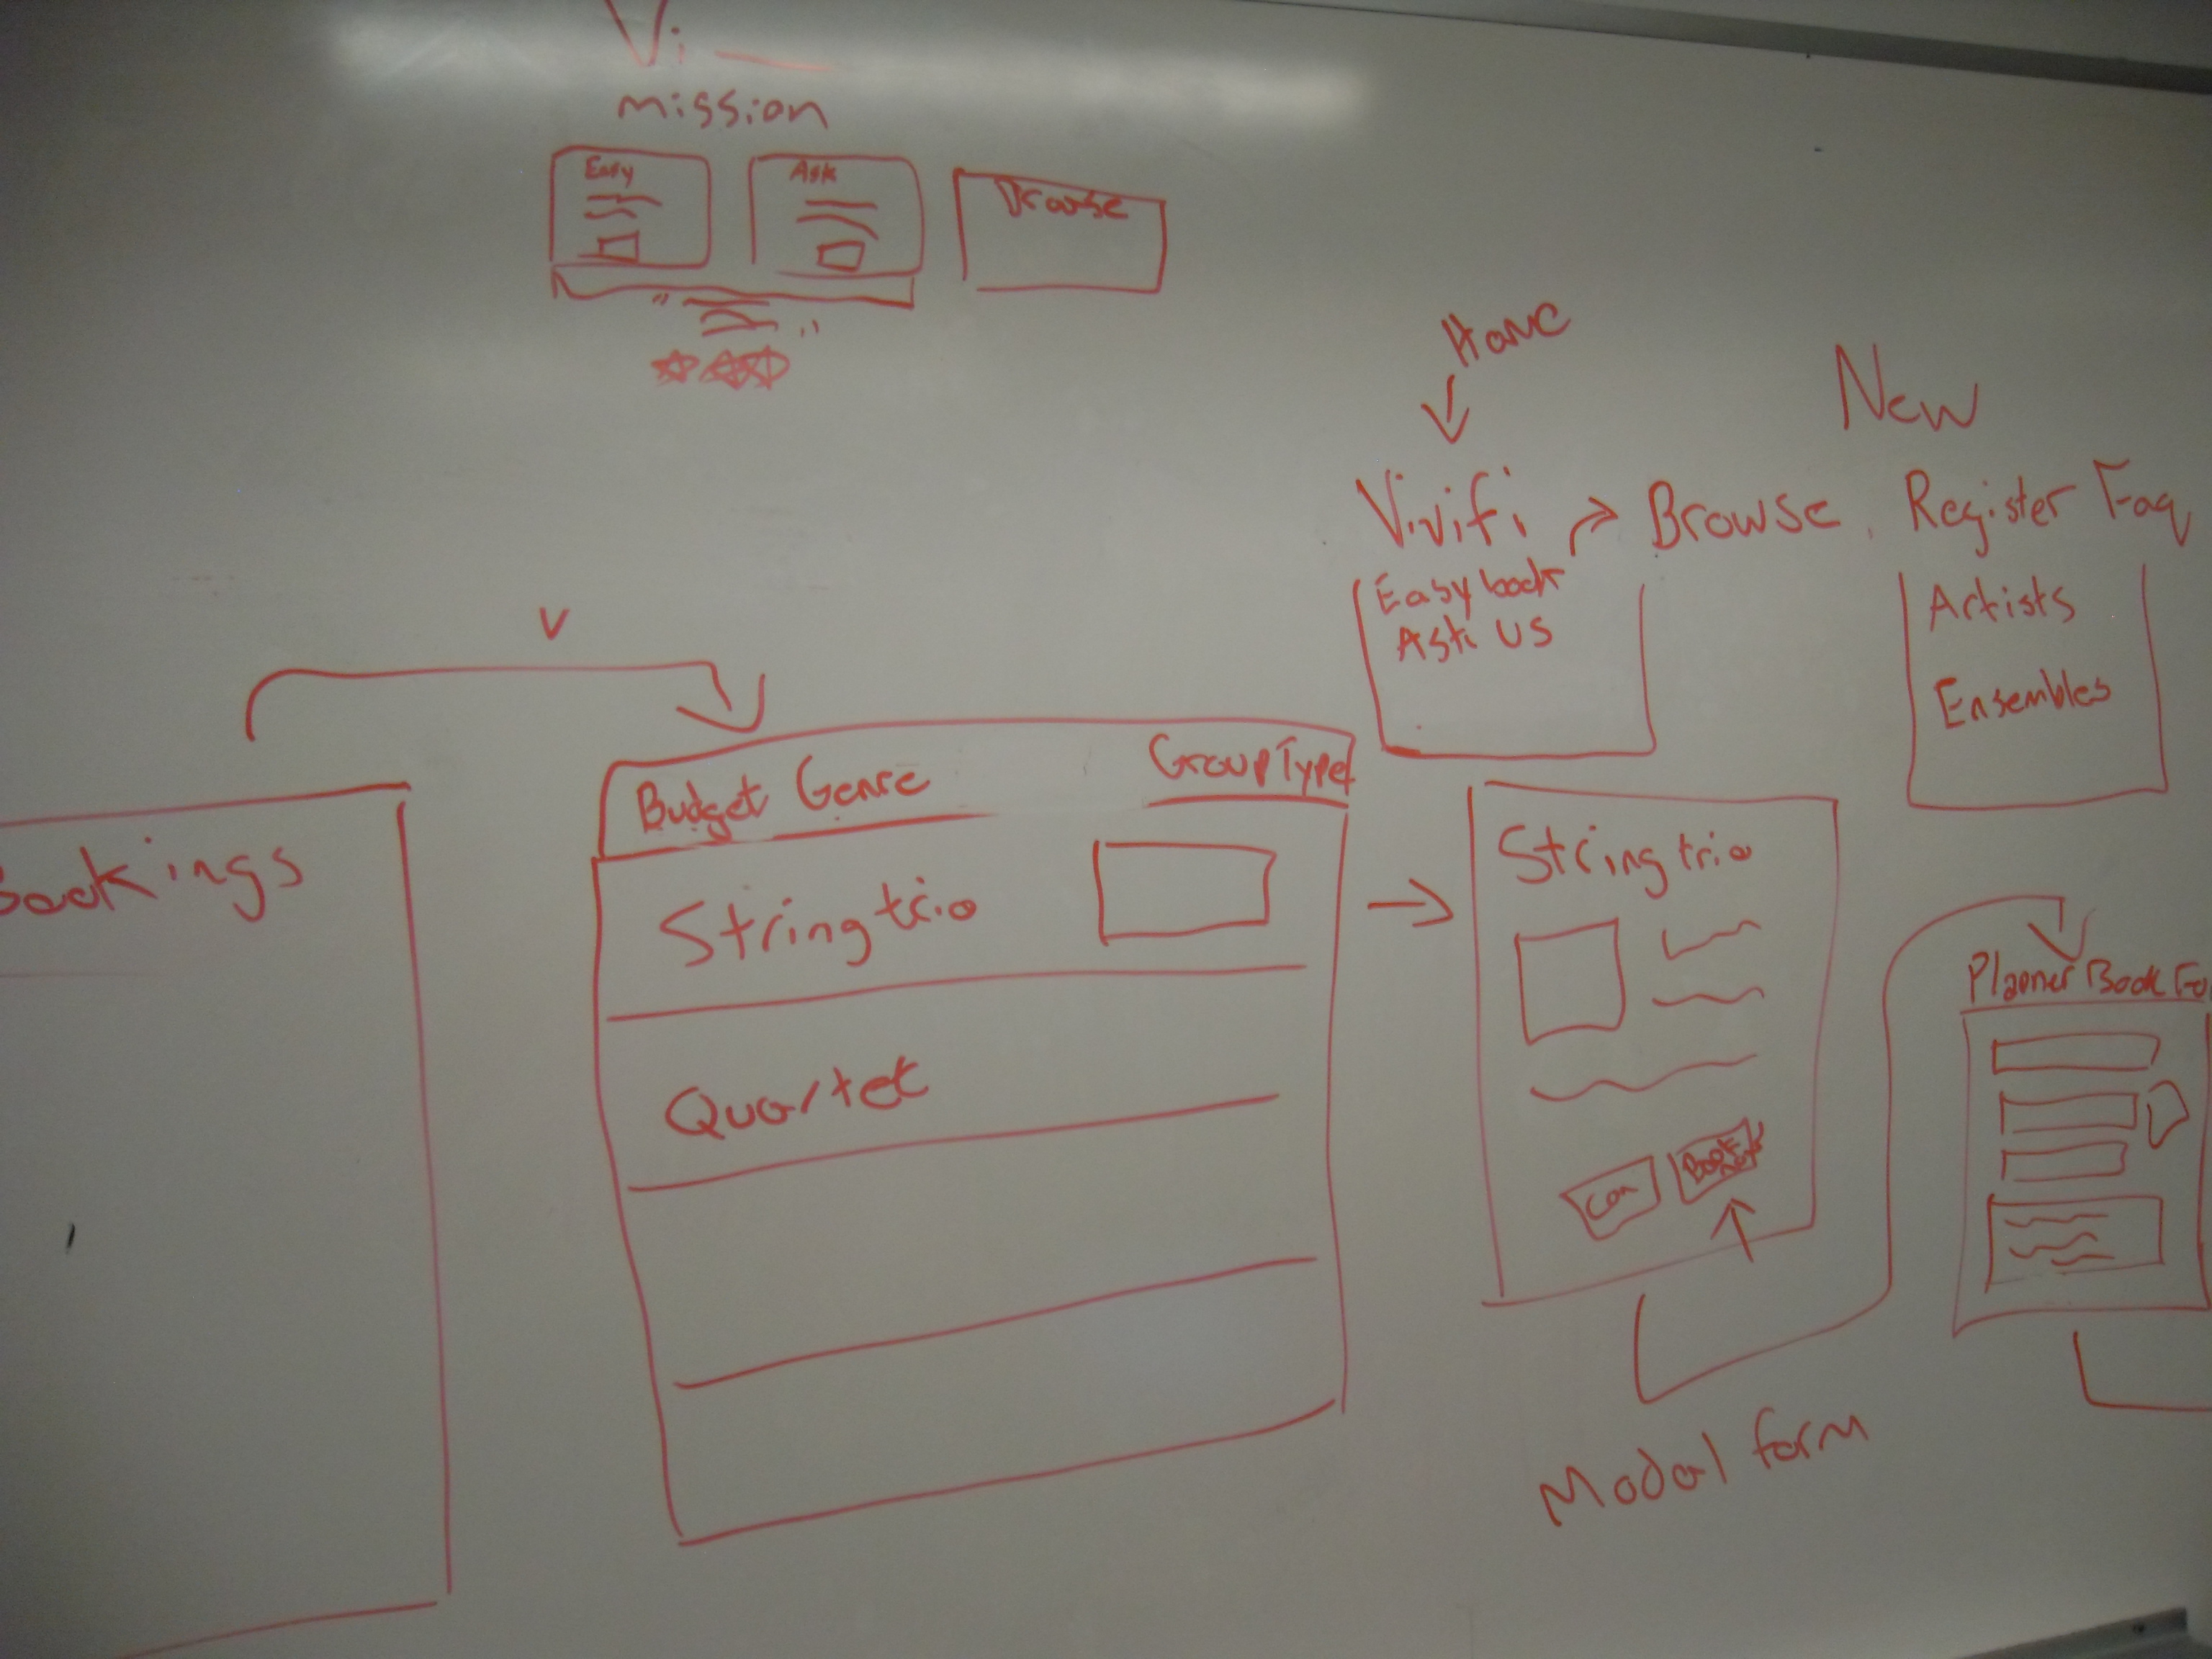 Vi
mission
Easy
Ask
Browse
Home
New
Vivifi
Browse, Register Faq
Easy book
Ask US
Artists
Ensembles
V
Bookings
Budget Genre Group Type
String trio
Quartet
String trio
Con
Book
Planner Book Fo
Modal form